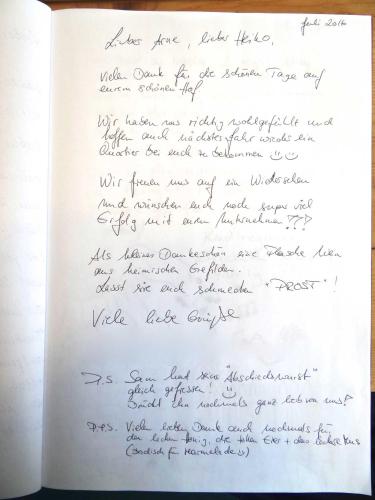 Juli 2016
Liebe Arne, lieber Heiko,
vielen Dank für die schönen Tage auf
eurem schönen Hof
Wir haben uns richtig wohlgefühlt und
hoffen auch nächstes Jahr wieder ein
Quartier bei euch zu bekommen ☺☺
Wir freuen uns auf ein Wiedersehen
und wünschen euch noch super viel
Erfolg mit eurem Unternehmen !!!
Als kleines Dankeschön eine Flasche Wein
aus heimischen Gefilden.
Lasst sie euch schmecken "PROST"!
Viele liebe Grüße
P.S. Sam hat seine "Abschiedswurst"
gleich gefressen! ☺
Drückt ihn nochmals ganz lieb von uns!
P.P.S. Vielen lieben Dank auch nochmals für
den leckeren Honig, die tollen Eier + das leckere Mus
(Badisch für Marmelade ☺)